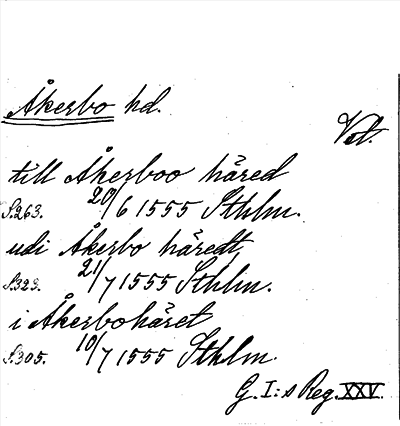 Åkerbo hd.
Vstl.
till Åkerboo häred
S.263. 20/6 1555 Sthlm.
udi Åkerbo häredt,
S.323. 21/7 1555 Sthlm.
i Åkerbohäret
S.305. 10/7 1555 Sthlm.
G.I:s Reg. XXV.